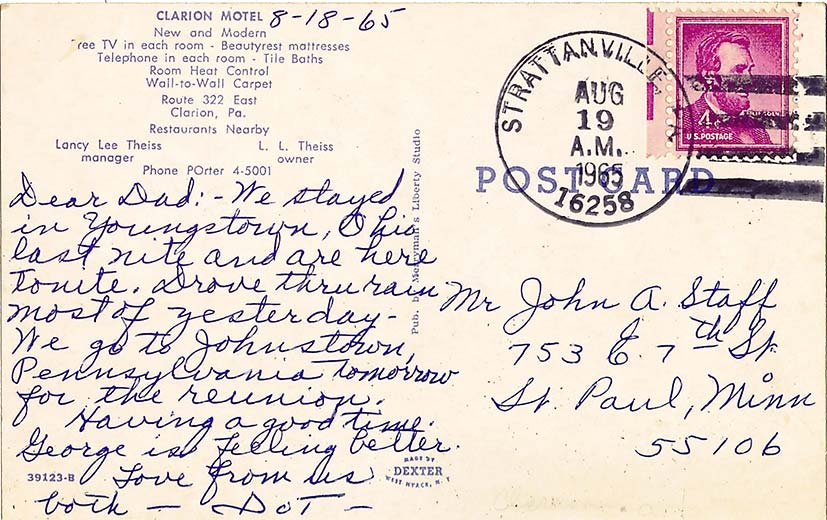 CLARION MOTEL 8-18-65
New and Modern
ree TV in each room - Beautyrest mattresses
Telephone in each room - Tile Baths
Room Heat Control
Wall-to-Wall Carpet
Route 322 East
Clarion, Pa.
Restaurants Nearby
Lancy Lee Theiss L. L. Theiss
manager owner
Phone POrter 4-5001
Dear Dad:- We stayed
in Youngstown, Ohio
last nite and are here
tonite. Drove thru rain
most of yesterday-
We go to Johnstown,
Pennsylvania tomorrow
for the reunion.
Having a good time.
George is feeling better.
Love from us
both — Dot —
39123-B
Pub. by Merryman's Liberty Studio
MADE BY
DEXTER
WEST NYACK, N. Y.
STRATTANVILLE, PA
AUG
19
A.M.
1965
16258
4¢
U.S. POSTAGE
POST CARD
Mr John A. Staff
753 E. 7th St
St. Paul, Minn
55106